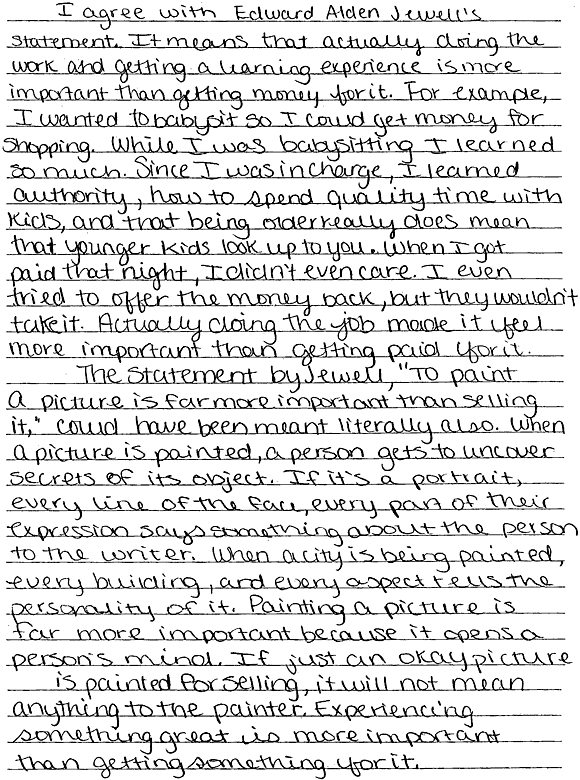 I agree with Edward Alden Jewell's
statement. It means that actually doing the
work and getting a learning experience is more
important than getting money for it. For example,
I wanted to babysit so I could get money for
shopping. While I was babysitting I learned
so much. Since I was in charge, I learned
authority, how to spend quality time with
kids, and that being older really does mean
that younger kids look up to you. When I got
paid that night, I didn't even care. I even
tried to offer the money back, but they wouldn't
take it. Actually doing the job made it feel
more important than getting paid for it.
The statement by Jewell, "To paint
a picture is far more important than selling
it," could have been meant literally also. When
a picture is painted, a person gets to uncover
secrets of its object. If it's a portrait,
every line of the face, every part of their
expression says something about the person
to the writer. When a city is being painted,
every building, and every aspect tells the
personality of it. Painting a picture is
far more important because it opens a
person's mind. If just an okay picture
is painted for selling, it will not mean
anything to the painter. Experiencing
something great is more important
than getting something for it.